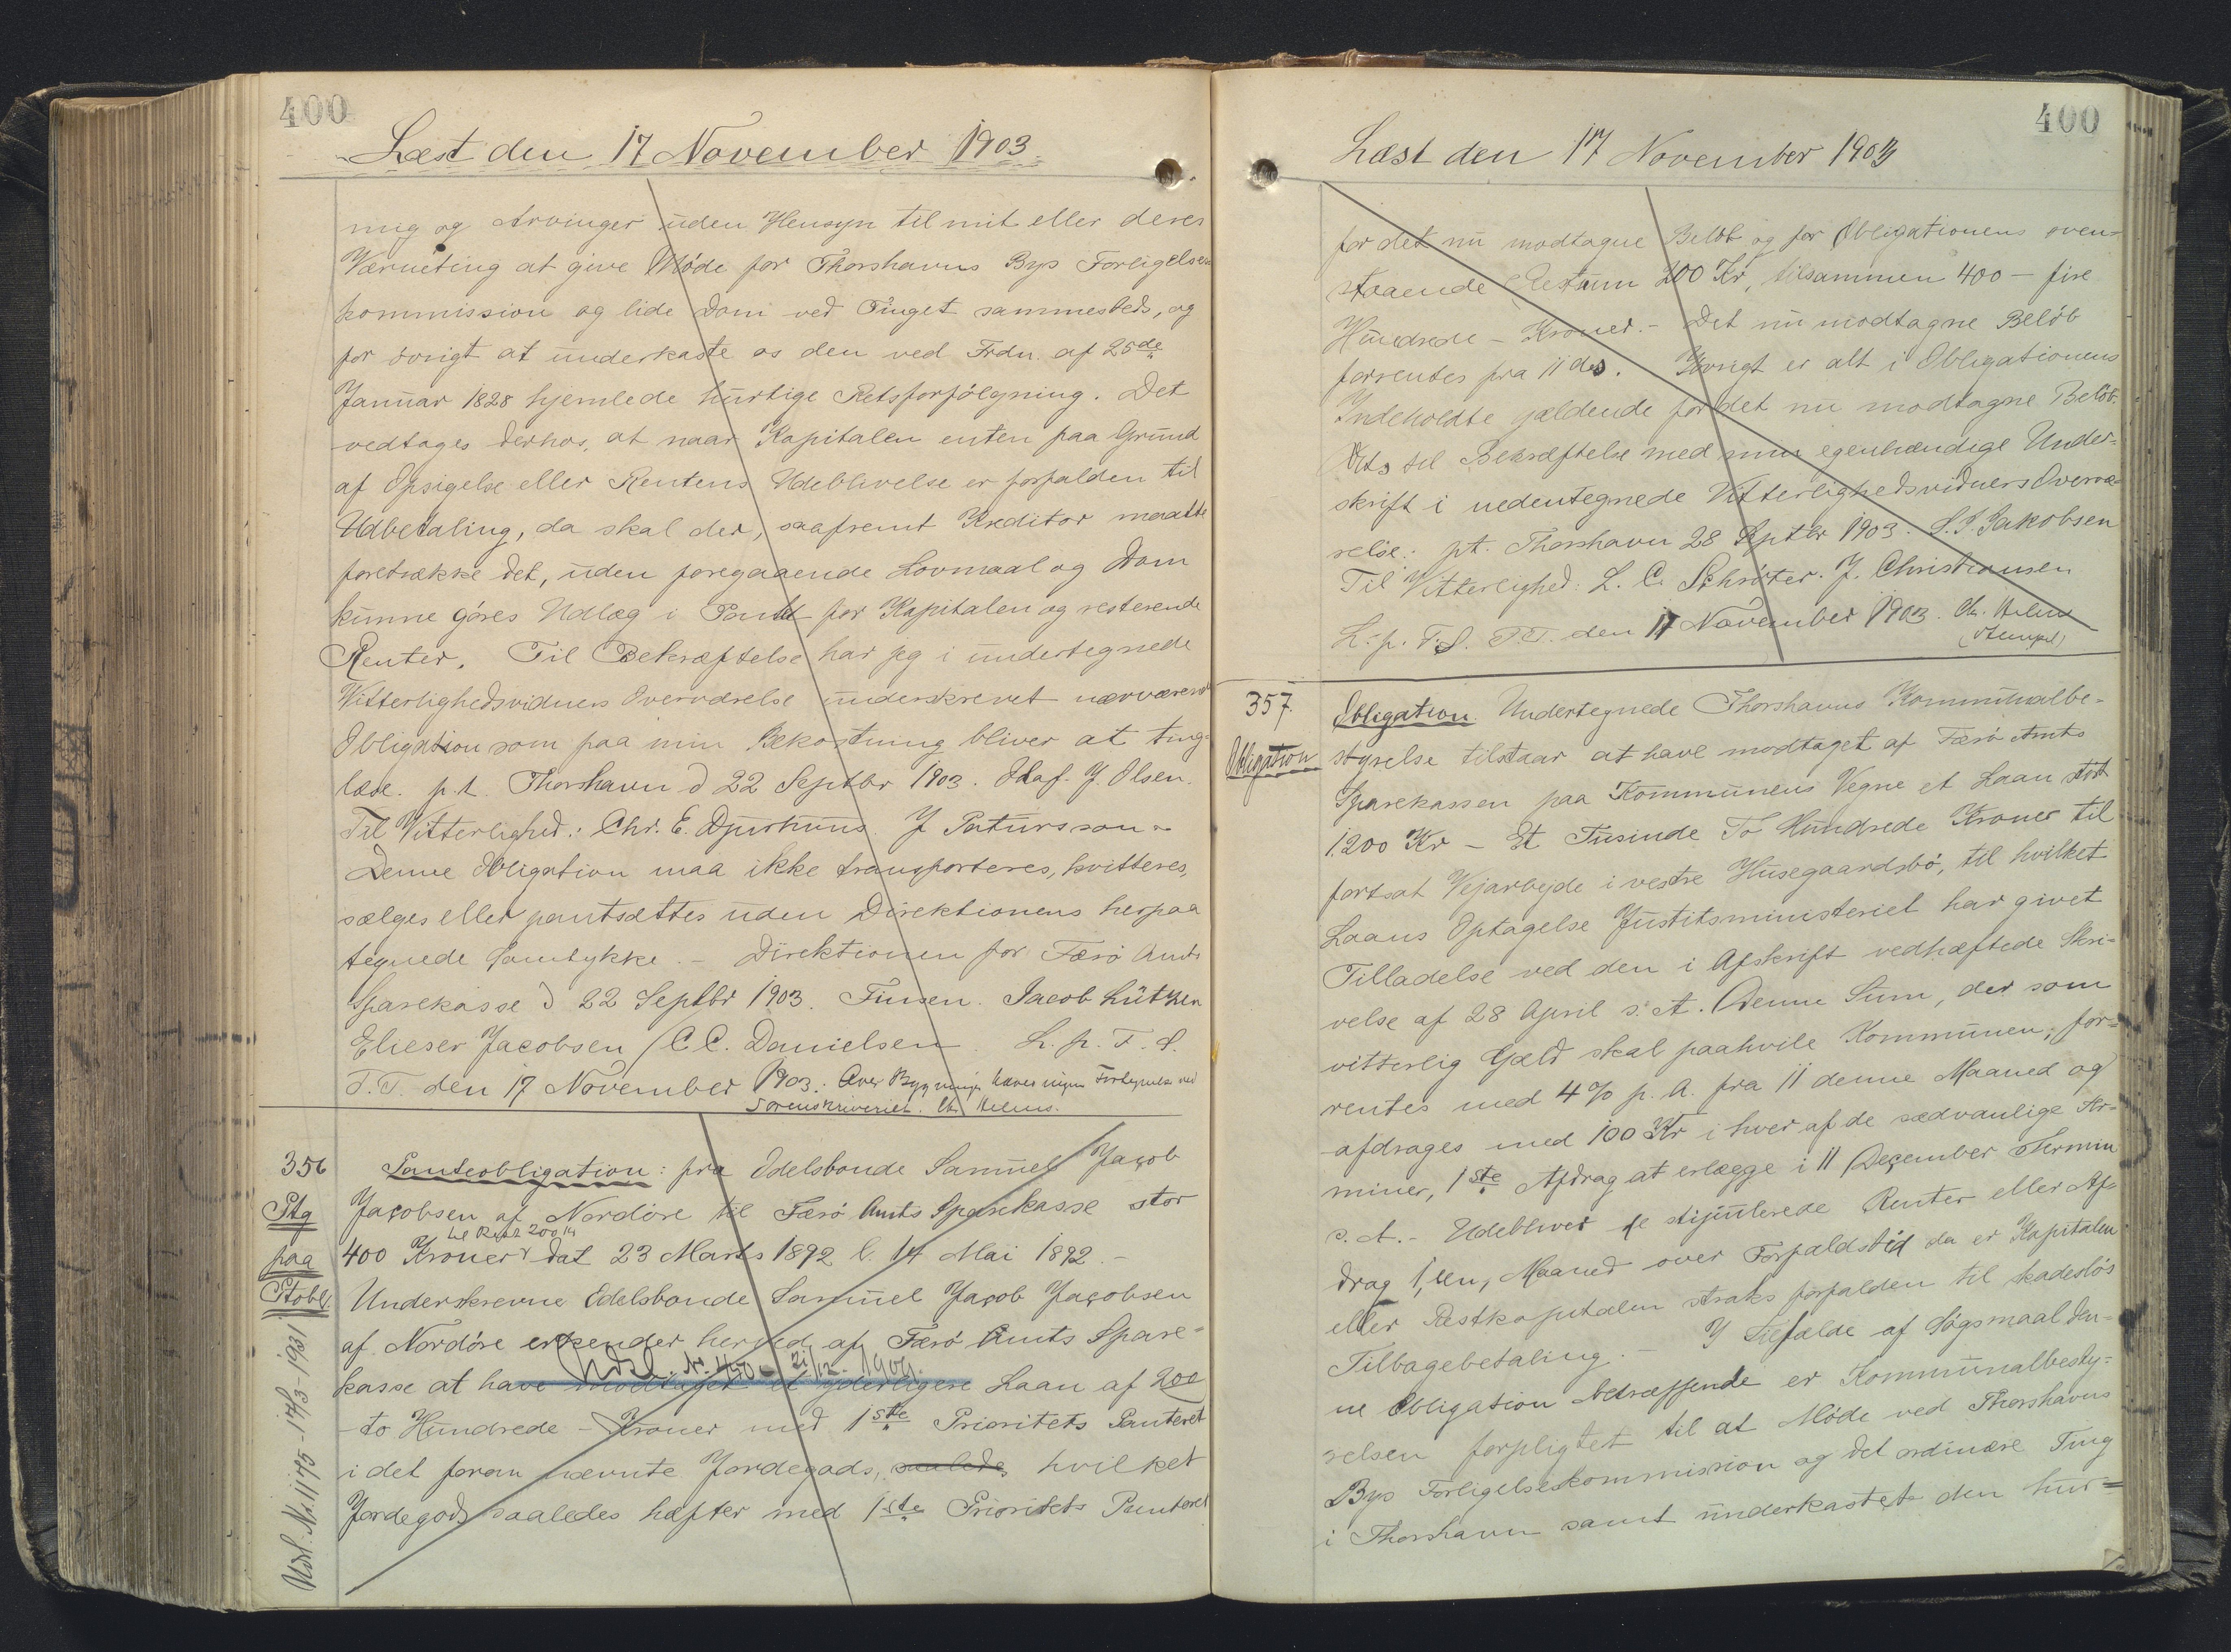 400
Læst den 17 November 1903
mig og Arvinger uden Hensyn til mit eller deres
Værneting at give Møde for Thorshavns Bys Forligelses-
kommission og lide Dom ved Tinget sammesteds, og
for övrigt at underkaste os den ved Frdn. af 25de
Januar 1828 hjemlede hurtige Retsforfölgning. Det
vedtages derhos, at naar Kapitalen enten paa Grund
af Opsigelse eller Rentens Udeblivelse er forfalden til
Udbetaling, da skal der, saafremt Kreditor maatte
foretrække det, uden foregaaende Lovmaal og Dom
kunne göres Udlæg i Pantet for Kapitalen og resterende
Renter. Til Bekræftelse har jeg i undertegnede
Vitterlighedsvidners Overværelse underskrevet nærværende
Obligation som paa min Bekostning bliver at ting-
læse. p.t. Thorshavn d 22 Septbr 1903. Olaf. J. Olsen.
Til Vitterlighed: Chr. E. Djurhuus. J Patursson.
Denne Obligation maa ikke transporteres, kvitteres,
sælges eller pantsættes uden Direktionens herpaa
tegnede Samtykke. – Direktionen for Færö Amts
Sparekasse d 22 Septbr 1903. Finsen. Jacob Lützen
Elieser Jacobsen / C.C. Danielsen. L. p. F. S.
T.T. den 17 November 1903. Over Bygninger haves ingen Fortegnelse ved
Sorenskriveriet. Ch. Helms.
356
Ptg
paa
Ptobl.
Udsl. Nr. 1175-17/3-1931
Panteobligation: fra Odelsbonde Samuel Jacob
Jacobsen af Nordöre til Færö Amts Sparekasse stor
til Rest 200 Kr
400 Kroner dat 23 Marts 1892 l. 14 Mai 1892. –
Underskrevne Odelsbonde Samuel Jacob Jacobsen
af Nordöre erkender herved af Færö Amts Spare-
Udsl. Nr. 450 – 21/12 – 1909.
kasse at have modtaget et yderligere Laan af 200
– to Hundrede – Kroner med 1ste Prioritets Panteret
i det foran nævnte Jordegods, saaledes hvilket
Jordegods saaledes hæfter med 1ste Prioritets Panteret
400
Læst den 17 November 1903
for det nu modtagne Belöb og for Obligationens oven-
staaende Restsum 200 Kr, tilsammen 400 – fire
Hundrede – Kroner. – Det nu modtagne Belöb
forrentes fra 11 ds. Iövrigt er alt i Obligationens
Indeholdte gældende for det nu modtagne Belöb.
Dets til Bekræftelse med min egenhændige Under-
skrift i nedentegnede Vitterlighedsvidners Overvæ-
relse: pt. Thorshavn 28 Septbr 1903. S. J. Jakobsen
Til Vitterlighed: L. C. Schröter. J. Christiansen
L. p. F. S. T.T. den 17 November 1903. Ch. Helms
(Stempel)
357.
Obligation
Obligation. Undertegnede Thorshavns Kommunalbe-
styrelse tilstaar at have modtaget af Færö Amts
Sparekassen paa Kommunens Vegne et Laan stort
1.200 Kr – Et Tusinde To Hundrede Kroner til
fortsat Vejarbejde i vestre Husegaardsbö, til hvilket
Laans Optagelse Justitsministeriet har givet
Tilladelse ved den i Afskrift vedhæftede Skri-
velse af 28 April s. A. Denne Sum, der som
vitterlig Gæld skal paahvile Kommunen, for-
rentes med 4 % p. A. fra 11 denne Maaned og
afdrages med 100 Kr i hver af de sædvanlige Ter-
miner, 1ste Afdrag at erlægge i 11 December Termin
s. A. – Udebliver de stipulerede Renter eller Af-
drag 1, een, Maaned over Forfaldstid da er Kapitalen
eller Restkapitalen straks forfalden til skadeslös
Tilbagebetaling. – I Tilfælde af Sögsmaal den-
ne Obligation betræffende er Kommunalbesty-
relsen forpligtet til at Møde ved Thorshavns
Bys Forligelseskommission og det ordinære Ting
i Thorshavn samt underkastet den hur-